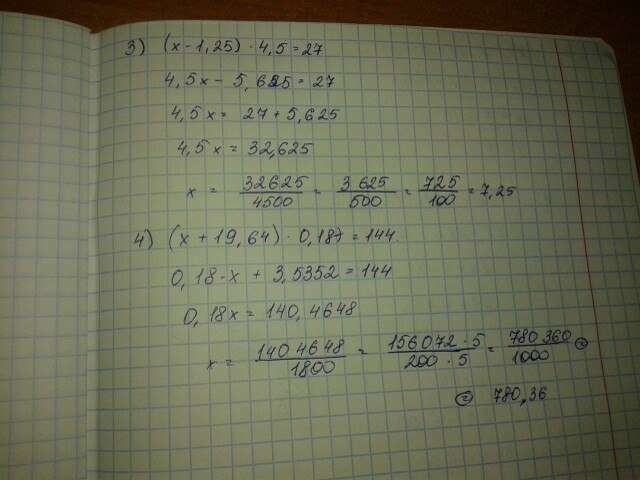 3) (x - 1,25) · 4,5 = 27
4,5x - 5,625 = 27
4,5x = 27 + 5,625
4,5x = 32,625
x = 32625/4500 = 3625/500 = 725/100 = 7,25
4) (x + 19,64) · 0,187 = 144.
0,18·x + 3,5352 = 144
0,18x = 140,4648
x = 1404648/1800 = 156072·5/200·5 = 780360/1000 =
= 780,36